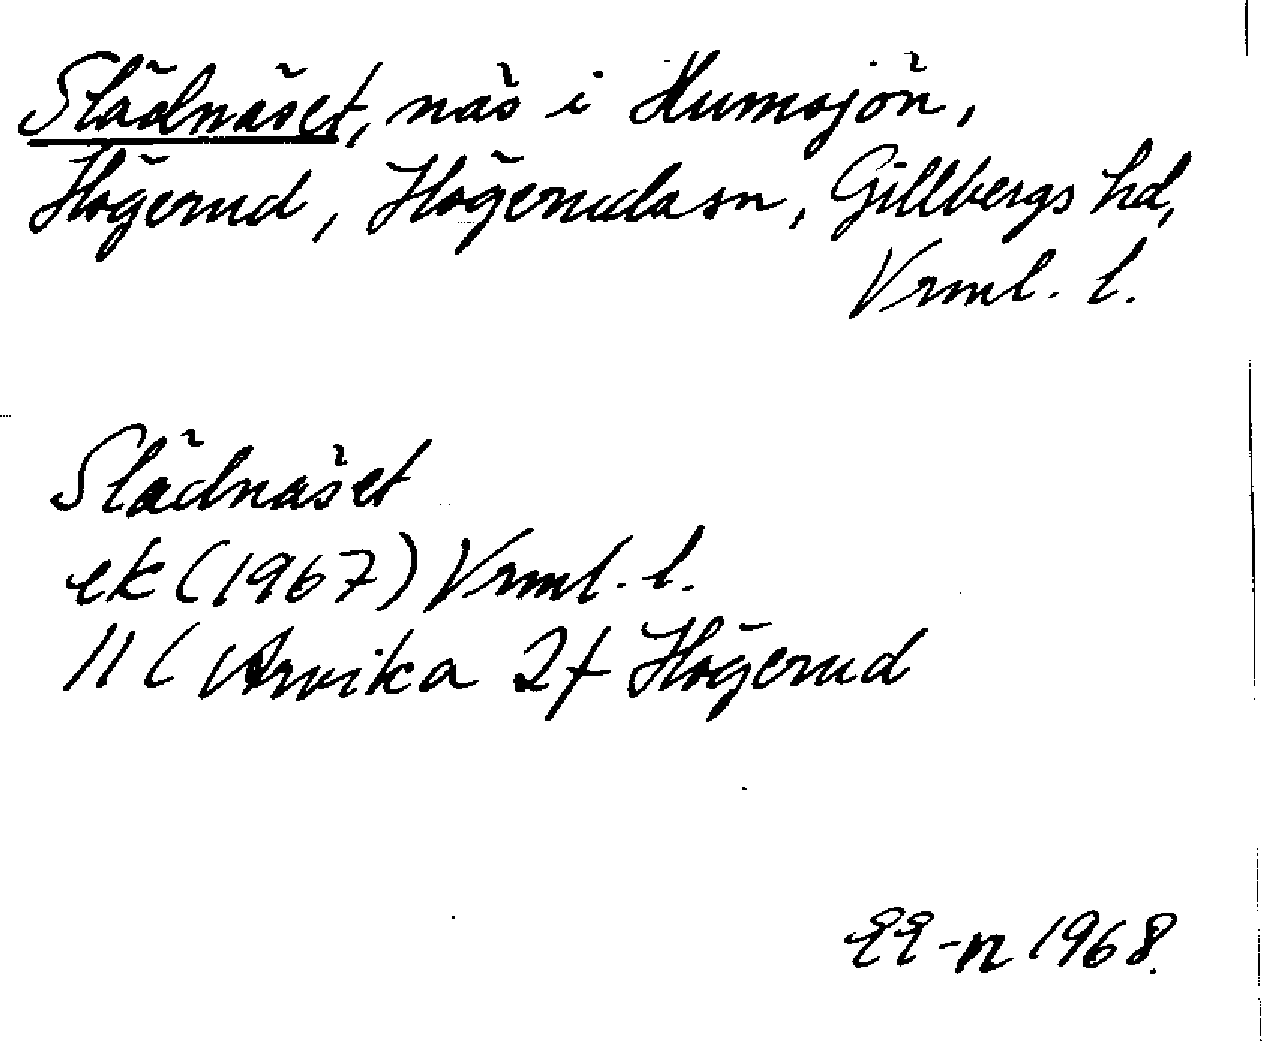 Slädnäset, näs i Humsjön,
Högerud, Högeruds sn, Gillbergs hd,
Vrml. l.
Slädnäset
ek (1967) Vrml. l.
11 C Arvika 2f Högerud
EE-n 1968.